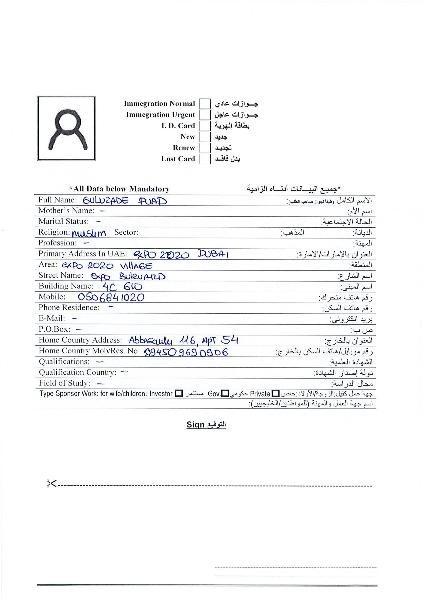 Immegration Normal جـــوازات عادي
Immegration Urgent جـــوازات عاجل
I. D. Card بطاقة الهوية
New جديد
Renew تجديد
Lost Card بدل فاقد
*All Data below Mandatory *جميع البيانات أدناه الزامية
Full Name: GULUZADE FUAD الاسم الكامل
Mother's Name: - اسم الأم:
Marital Status: - الحالة الاجتماعية:
Religion: muslim Sector: المذهب: الديانة:
Profession: - المهنة:
Primary Address In UAE: EXPO 2020 DUBAI العنوان بالامارات/الامارة:
Area: EXPO 2020 VILLAGE المنطقة
Street Name: EXPO اسم الشارع:
Building Name: 4C اسم المبنى:
Mobile: 0506841020 رقم هاتف متحرك:
Phone Residence: - رقم هاتف السكن:
E-Mail: - بريد الكتروني:
P.O.Box: - ص.ب:
Home Country Address: 116, APT 54 العنوان بالخارج:
Home Country Mob/Res. No رقم موبايل/هاتف السكن بالخارج:
Qualifications: - الشهادة العلمية:
Qualification Country: - دولة إصدار الشهادة:
Field of Study: - مجال الدراسة:
Type Sponsor Work: for wife/children: Investor مستثمر Gov حكومي Private خاص جهة عمل كفيل الزوجة/الأولاد:
اسم جهة العمل والمهنة (للمواطنين/الخليجيين):
Sign التوقيع